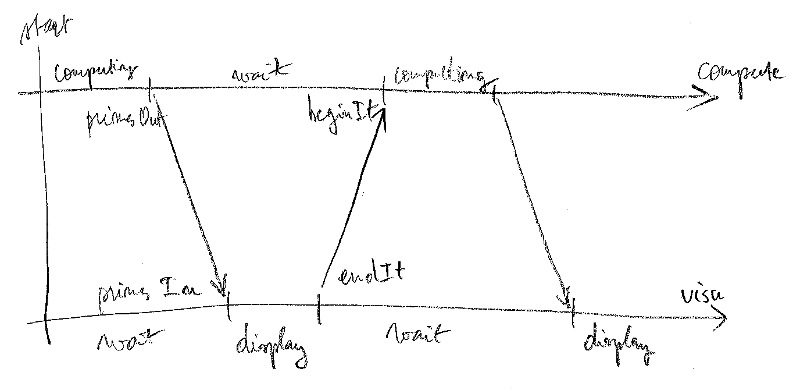 start
computing wait computing compute
primesOut beginIt
endIt
primesIn visu
wait display wait display